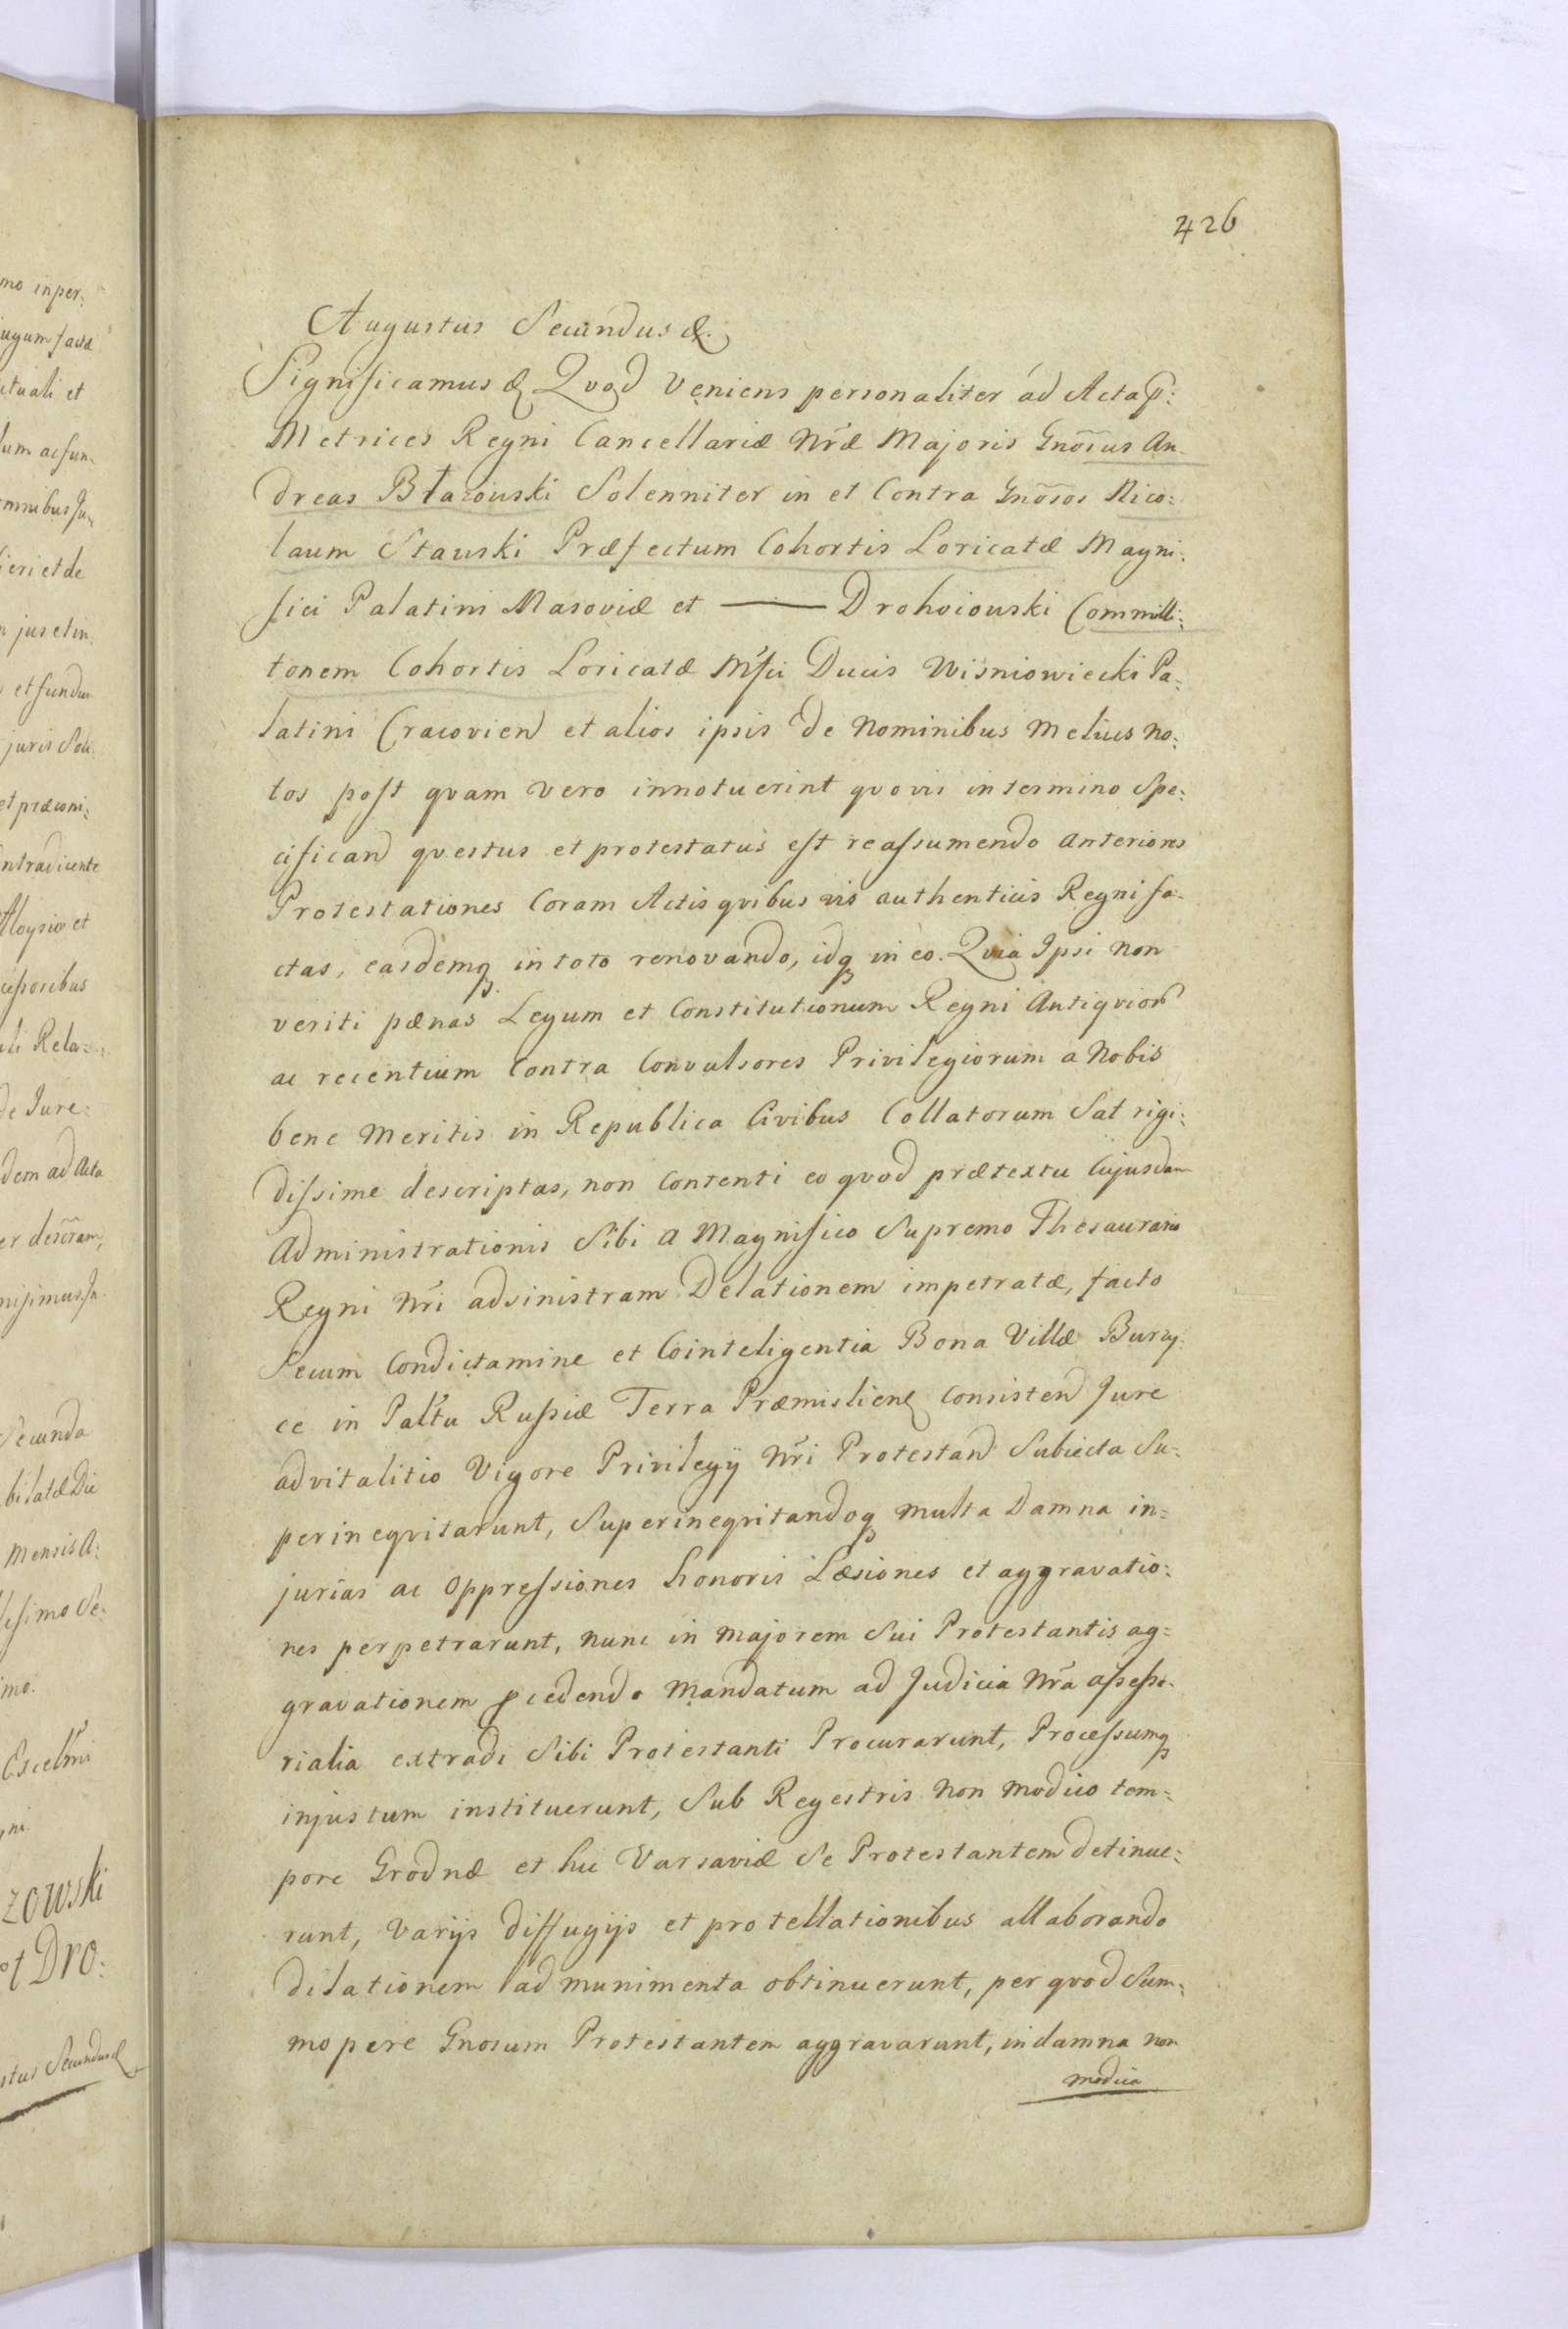 426
Augustus Secundus &.
Significamus & Qvod Veniens personaliter ád Acta p̃:
Metrices Regni Cancellariæ Nr̃æ Majoris Gnõsus An-
dreas Błazouski Solenniter in et Contra Gnõsos Nico:
laum Stauski Præfectum Cohortis Loricatæ Magni:
fici Palatini Masoviæ et —— Drohoiouski Commili:
tonem Cohortis Loricatæ Mf̃ci Ducis Wisniowiecki Pa:
latini Cracovien et alios ipsis de Nominibus Melius No:
tos post qvam vero innotuerint qvovis in termino Spe:
cifican qvestus et protestatus est reassumendo anteriores
Protestationes Coram Actis qvibus vis authenticis Regni fa-
ctas, easdemq in toto renovando, idq in eo. Qvia Ipsi non
veriti pænas Legum et Constitutionum Regni Antiqvior
ac recentium Contra Convulsores Privilegiorum a Nobis
bene Meritis in Republica Civibus Collatorum Sat rigi:
dissime descriptas, non Contenti eo qvod prætextu Cujusdam
Administrationis Sibi a Magnifico Supremo Thesaurario
Regni Nr̃i ad sinistram Delationem impetratæ, facto
Secum Condictamine et Cointeligentia Bona Villæ Burcy:
ce in Pal̃tu Russiæ Terra Præmislien Consisten Jure
advitalitio Vigore Privilegij Nr̃i Protestan Subiecta Su-
perineqvitarunt, Superineqvitandoq multa Damna in=
jurias ac Oppressiones honoris Læsiones et aggravatio:
nes perpetrarunt, nunc in majorem Sui Protestantis ag=
gravationem pcedendo Mandatum ad Judicia Nr̃a assesso-
rialia extradi Sibi Protestanti Procurarunt, Processumq
injustum instituerunt, Sub Regestris non modico tem:
pore Grodnæ et hic Varsaviæ Se Protestantem detinue:
runt, Varijs diffugijs et protellationibus allaborando
dilationem ad munimenta obtinuerunt, per qvod Sum:
mopere Gnosum Protestantem aggravarunt, in damna non
modica